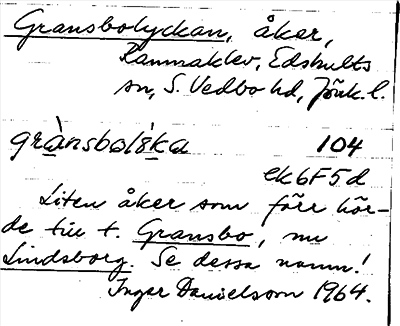 Gransbolyckan, åker,
Rammaklev, Edshults
sn, S. Vedbo hd, Jönk. l.
grànsbolẏ́ka 104
ek 6F5d
Liten åker som förr hör-
de till t. Gransbo, nu
Lindsborg. Se dessa namn!
Ingar Danielsson 1964.